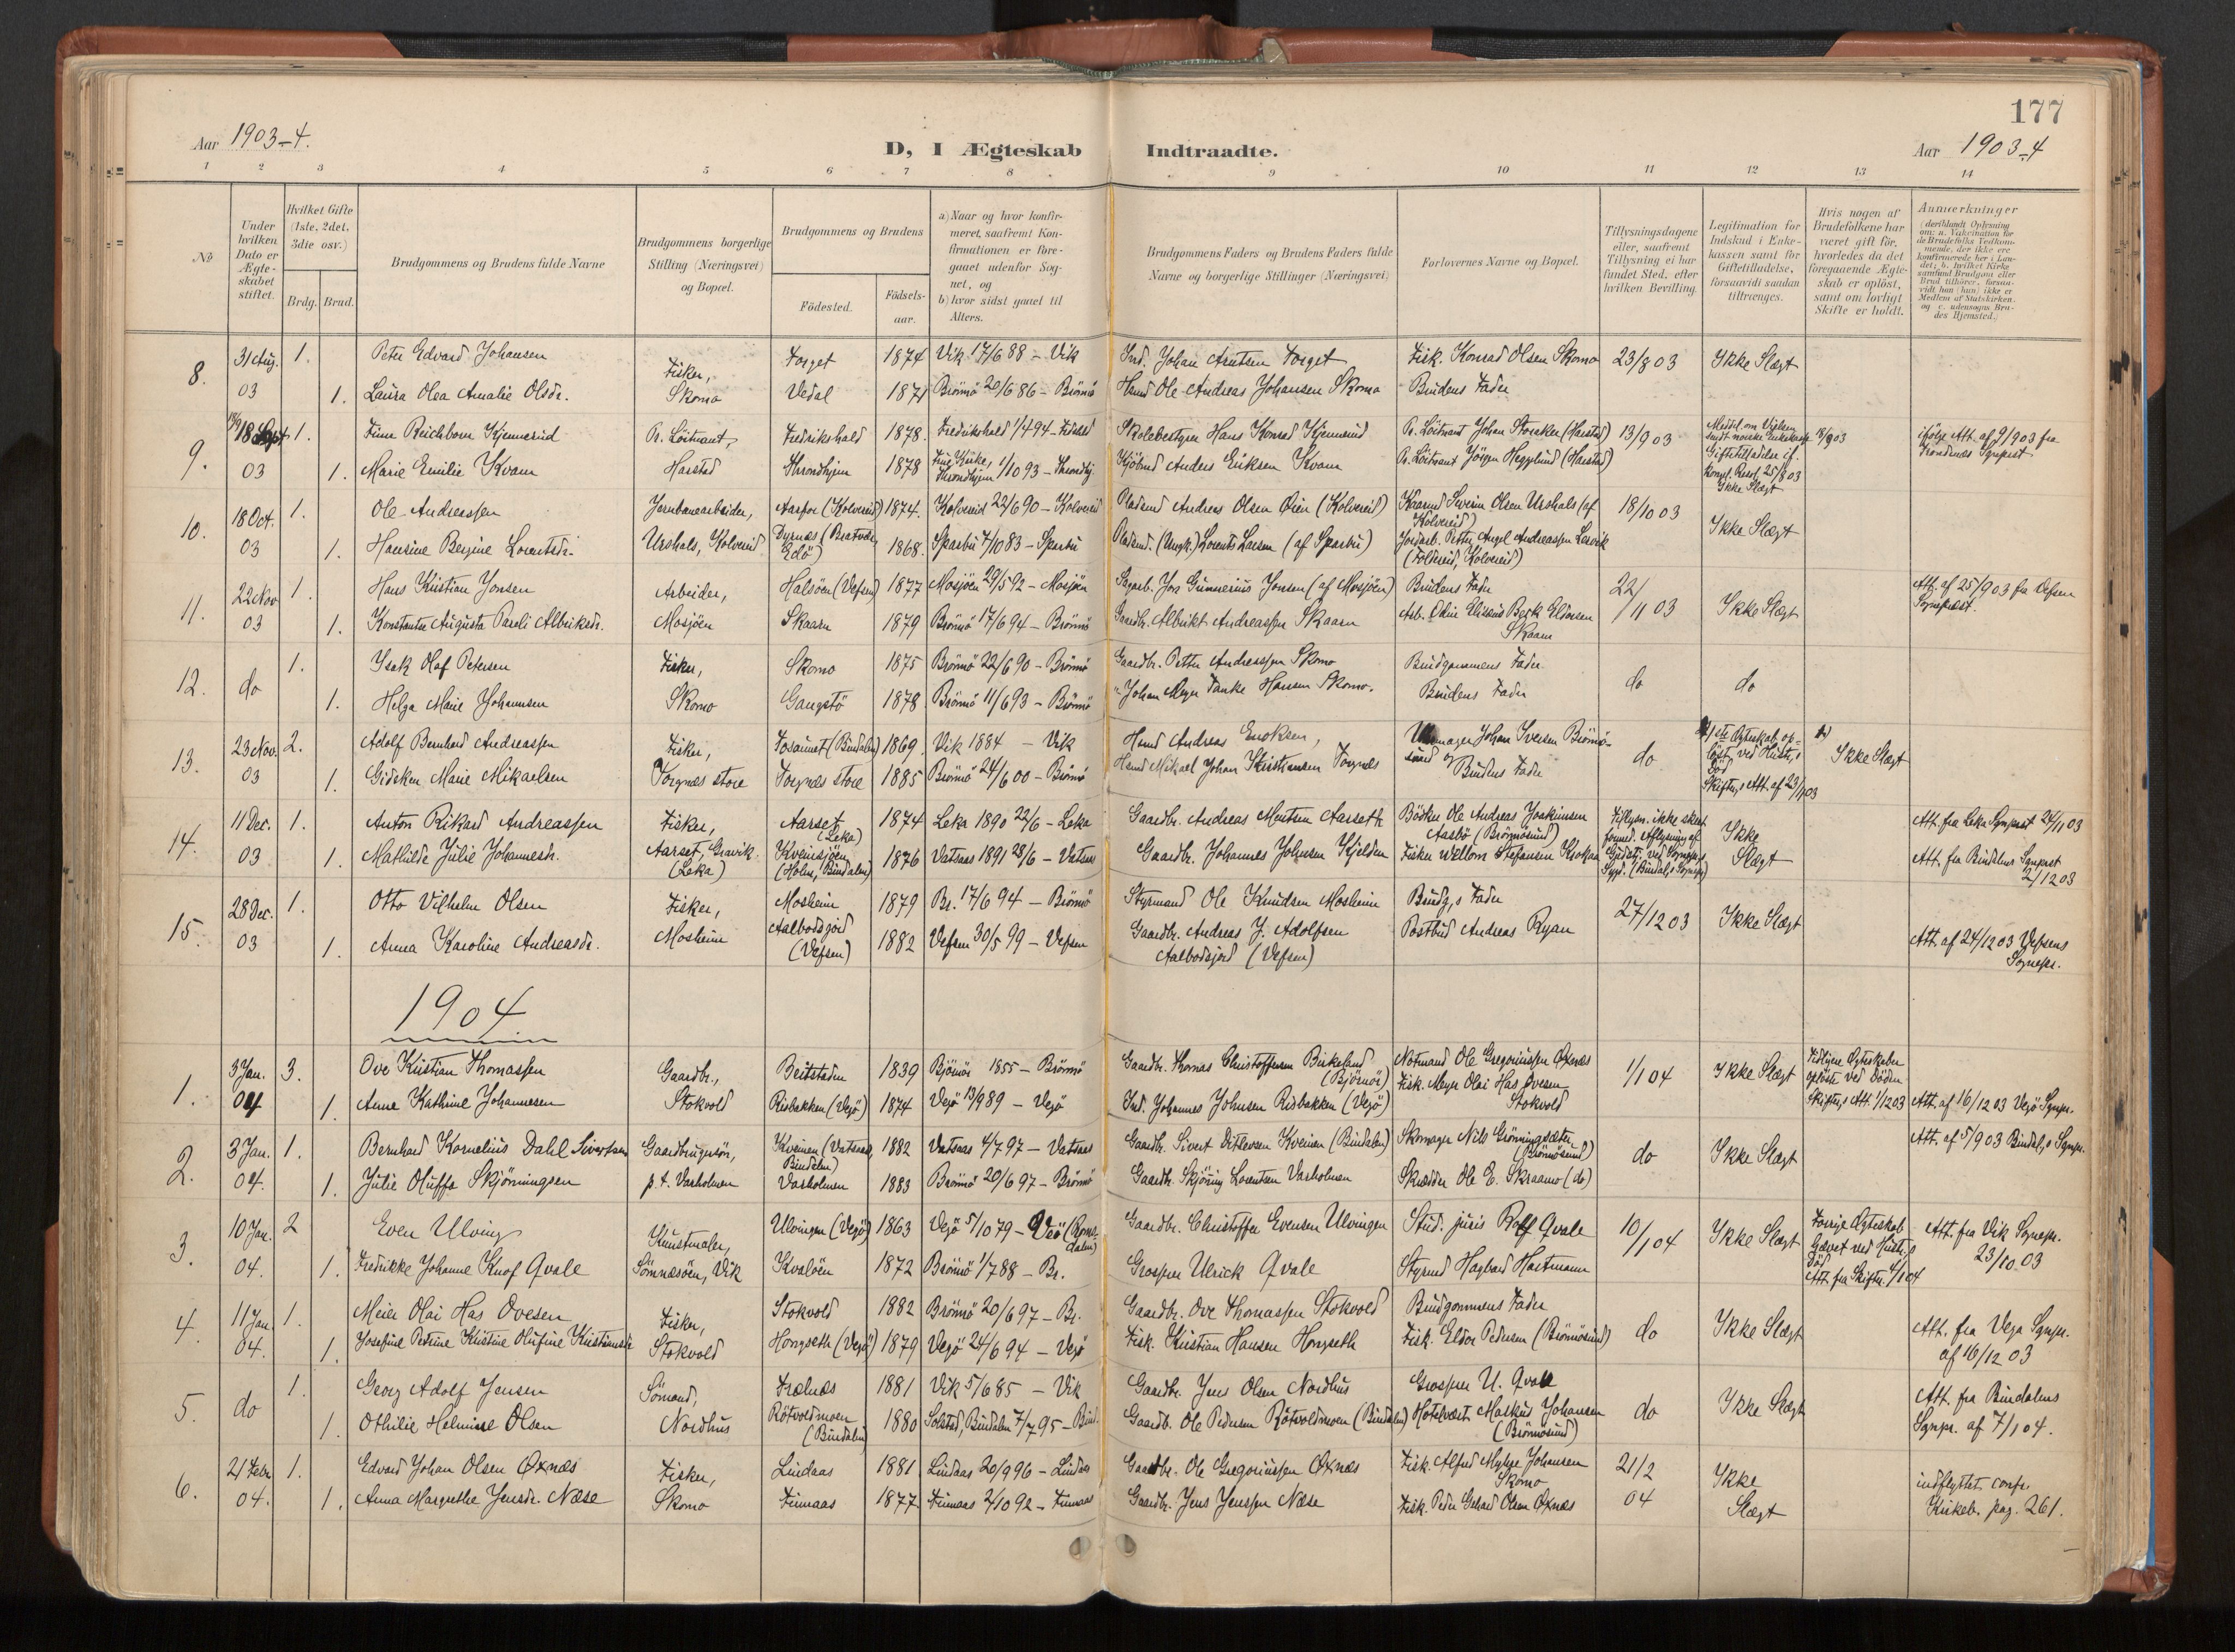 177
Aar 1903-4.
D, I Ægteskab Indtraadte.
Aar 1903-4
1 2 3 4 5 6 7 8 9 10 11 12 13 14
No
Under hvilken Dato er Ægteskabet stiftet.
Hvilket Gifte (1ste, 2det, 3die osv.)
Brdg. Brud.
Brudgommens og Brudens fulde Navne
Brudgommens borgerlige Stilling (Næringsvei) og Bopæl.
Brudgommens og Brudens
Fødested.
Fødselsaar.
a) Naar og hvor konfirmeret, saafremt Konfirmationen er foregaaet udenfor Sognet, og
b) hvor sidst gaaet til Alters.
Brudgommens Faders og Brudens Faders fulde Navne og borgerlige Stillinger (Næringsvei)
Forlovernes Navne og Bopæl.
Tillysningsdagene eller, saafremt Tillysning ei har fundet Sted, efter hvilken Bevilling.
Legitimation for Indskud i Enkekassen samt for Giftetilladelse, forsaavidt saadan tiltrænges.
Hvis nogen af Brudefolkene har været gift før, hvorledes da det foregaaende Ægteskab er opløst, samt om lovligt Skifte er holdt.
Anmerkninger
8. 31 Aug. 1. Peter Edvard Johansen Fisker, Torget 1874 Vik 17/6 88 - Vik Ind. Johan Arntsen Torget Fisk. Konrad Olsen Skomo 23/8 03 Ikke Slægt
03 1. Laura Olea Amalie Olsdr. Skomo Vedal 1871 Brönnö 20/6 86 - Brönnö Husmd Ole Andreas Johansen Skomo Brudens Fader
9. 18 Sept 1. Reichborn Kjennerud Pr. Löitnant, Fredrikshald 1878. Fredrikshald 1/4 94 Skolebestyrer Hans Konrad Kjennerud Pr. Löitnant Johan (Harstad) 13/9 03 18/9 03 ifölge Att. af 9/9 03 fra Trondenæs Sognepræst
03 1. Marie Emilie Kvam Harstad Throndhjem 1878 Throndhjem 1/10 93 - Throndhj. Kjöbmd Anders Eriksen Kvam Pr. Löitnant Jörgen Hegglund (Harstad) Giftetilladelse if. Kongl. Resol. 25/8 03 Ikke Slægt
10. 18 Oct. 1. Ole Andreassen Jernbanearbeider, (Kolvereid) 1874. Kolvereid 22/6 90 - Kolvereid Pladsmd Andreas Olsen Öien (Kolvereid) Severin Olsen Urshals (af Kolvereid) 18/10 03 Ikke Slægt
03 1. Hansine Bergine Lorentsdr. Urshals, Kolvereid Dyrnæs (Bratvær, Edö) 1868. Sparbu 7/10 83 - Sparbu Pladsmd. (Ungk.) Lorents Larsen (af Sparbu) Jordarb. Petter Angel Andreassen Lervik (Foldereid, Kolvereid)
11. 22 Nov 1. Hans Kristian Jonsen Arbeider, Halsöen (Vefsen) 1877 Mosjöen 29/5 92 - Mosjöen Sagarb. Jon Gunnerius Jonsen (af Mosjöen) Brudens Fader 22/11 03 Ikke Slægt Att. af 25/9 03 fra Vefsen Sognepræst.
03 1. Konstantse Augusta Paroli Albrikdr. Mosjöen Skaaren 1879 Brönnö 17/6 94 - Brönnö Gaardbr. Albrikt Andreassen Skaaren Arb. Edin Elisæus Berk Eliasen Skaarn
12. do 1. Isak Olaf Petersen Fisker, Skomo 1875 Brönnö 22/6 90 - Brönnö Gaardbr. Petter Andreassen Skomo Brudgommens Fader do do
1. Helga Marie Johannsen Skomo Gangstö 1878 Brönnö 11/6 93 - Brönnö " Johan Meyer Tanke Hansen Skomo. Brudens Fader
13. 23 Nov. 2. Adolf Bernhard Andreassen Fisker, Fosaunet (Bindalen) 1869. Vik 1884 - Vik Husmd Andreas Enoksen, Urmager Johan Iversen Brönnösund og do 1ste Ægteskab oplöst ved Hustr,s Död Ikke Slægt
03 1. Gidsken Marie Mikaelsen Torgnes store Torgnes store 1885 Brönnö 24/6 00 - Brönnö Husmd Mikael Johan Kristiansen Torgnes Brudens Fader Skiftr,s Att. af 23/11 03
14. 11 Dec. 1. Anton Rikard Andreassen Fisker, Aarset (Leka) 1874 Leka 1890 22/6 - Leka Gaardbr. Andreas Mortsen Aarseth Bödker Ole Andreas Joakimsen Aasbö (Brönnösund) Ikke Slægt Att. fra Leka Sognepræst 24/11 03
03 1. Mathilde Julie Johannesdr. Aarset, Gravik (Leka) Kveinsjöen (Holm, Bindalen) 1876 Vatsaas 1891 28/6 - Vatsaas Gaardbr. Johannes Johnsen Kjelden Fisker Wellom Stefansen Krokaa Att. fra Bindalens Sognepræst 2/12 03
15. 28 Dec. 1. Otto Vilhelm Olsen Fisker, Mosheim 1879 Br. 17/6 94 - Brönnö Styrmand Ole Knudsen Mosheim Brudg,s Fader 27/12 03 Ikke Slægt
03 1. Anna Karoline Andreasdr. Mosheim Aalbodsjord (Vefsen) 1882 Vefsen 30/5 99 - Vefsen Gaardbr. Andreas J. Adolfsen Aalbodsjord (Vefsen) Postbud Andreas Ryan Att. af 24/12 03 Vefsens Sognepr.
1904
1. 3 Jan. 3. Ove Kristian Thomassen Gaardbr., Beitstaden 1839 Björnör 1855 - Brönnö Gaardbr. Thomas Christoffersen Birkeland (Björnör) Notmand Ole Gregoriussen Oxnæs 1/1 04 Ikke Slægt Tidligere Ægteskaber oplöste ved Döden
04 1. Anne Kathrine Johannesen Stokvold Risbakken (Vegö) 1874 Vegö 13/9 89 - Vegö Ind. Johannes Johnsen Risbakken (Vegö) Fisk. Meyer Olai Has Ovesen Stokvold Skiftr,s Att. 1/12 03 Att. af 16/12 03 Vegö Sognpr.
2. 3 Jan. 1. Bernhard Kornelius Dahl Sivertsen Gaardbrugersön, Kveinen (Vatsaas, Bindalen) 1882 Vatsaas 4/7 97 - Vatsaas Gaardbr. Sivert Ditlevsen Kveinen (Bindalen) Skomager Nils Grönningsæter (Brönnösund) do Ikke Slægt Att. af 5/9 03 Bindal,s Sognpr.
04. 1. Julie Oluffa Skjörningsen p.t. Varholmen Varholmen 1883 Brönnö 20/6 97 - Brönnö Gaardbr. Skjöring Lorentsen Varholmen Skrædder Ole E. Skraamo (do)
3. 10 Jan. 2 Even Ulving Kunstmaler, Ulvingen (Vegö) 1863 Vegö 5/10 79 - Veö (Romsdalen) Gaardbr. Christoffer Evensen Ulvingen Stud. juris Rolf Qvale 10/1 04 Ikke Slægt Forrige Ægteskab hævet ved Hustr,s Död Att. fra Vik Sognepr. 23/10 03
04. 1. Fredrikke Johanne Knof Qvale Sömnæsöen, Vik Kvalöen 1872 Brönnö 1/7 88 - Br. Grosserer Ulrick Qvale Styrmd Hagbard Hartmann Att. fra Skiftr. 4/1 04
4. 11 Jan. 1. Meier Olai Has Ovesen Fisker, Stokvold 1882 Brönnö 20/6 97 - Br. Gaardbr. Ove Thomassen Stokvold Brudgommens Fader do Ikke Slægt Att. fra Vega Sognpr. af 16/12 03
04. 1. Josefine Petrine Kristine Olufine Kristiansdr Stokvold Hongseth (Vegö) 1879 Vegö 24/6 94 - Vegö Fisk. Kristian Hansen Hongseth Fisk. Eldor Pedersen (Brönnösund)
5. do 1. Georg Adolf Jensen Sömand, Trælnæs 1881 Vik 5/6 85 - Vik Gaardbr. Jens Olsen Nordhus Grosserer U. Qvale do Ikke Slægt Att. fra Bindalens Sognpr. af 7/1 04.
1. Othilie Helmine Olsen Nordhus Rötvoldmoen (Bindalen) 1880 Solstad, Bindalen 7/7 95 - Bind. Gaardb. Ole Pedersen Rötvoldmoen (Bindalen) Hotelvært Markus Johansen (Brönnösund)
6. 21 Febr 1. Edvard Johan Olsen Oxnæs Fisker, Lindaas 1881 Lindaas 20/9 96 - Lindaas Gaardbr. Ole Gregoriussen Oxnæs Fisk. Alfred Johansen Skomo 21/2 04 Ikke Slægt indflyttet confr. Kirkeb. pag. 261.
04. 1. Anna Margrethe Jensdr. Næse Skomo Fiinaas 1877 Fiinaas 2/10 92 - Fiinaas Gaardbr. Jens Jenssen Næse Fisk. Peder Gerhard Olsen Oxnæs